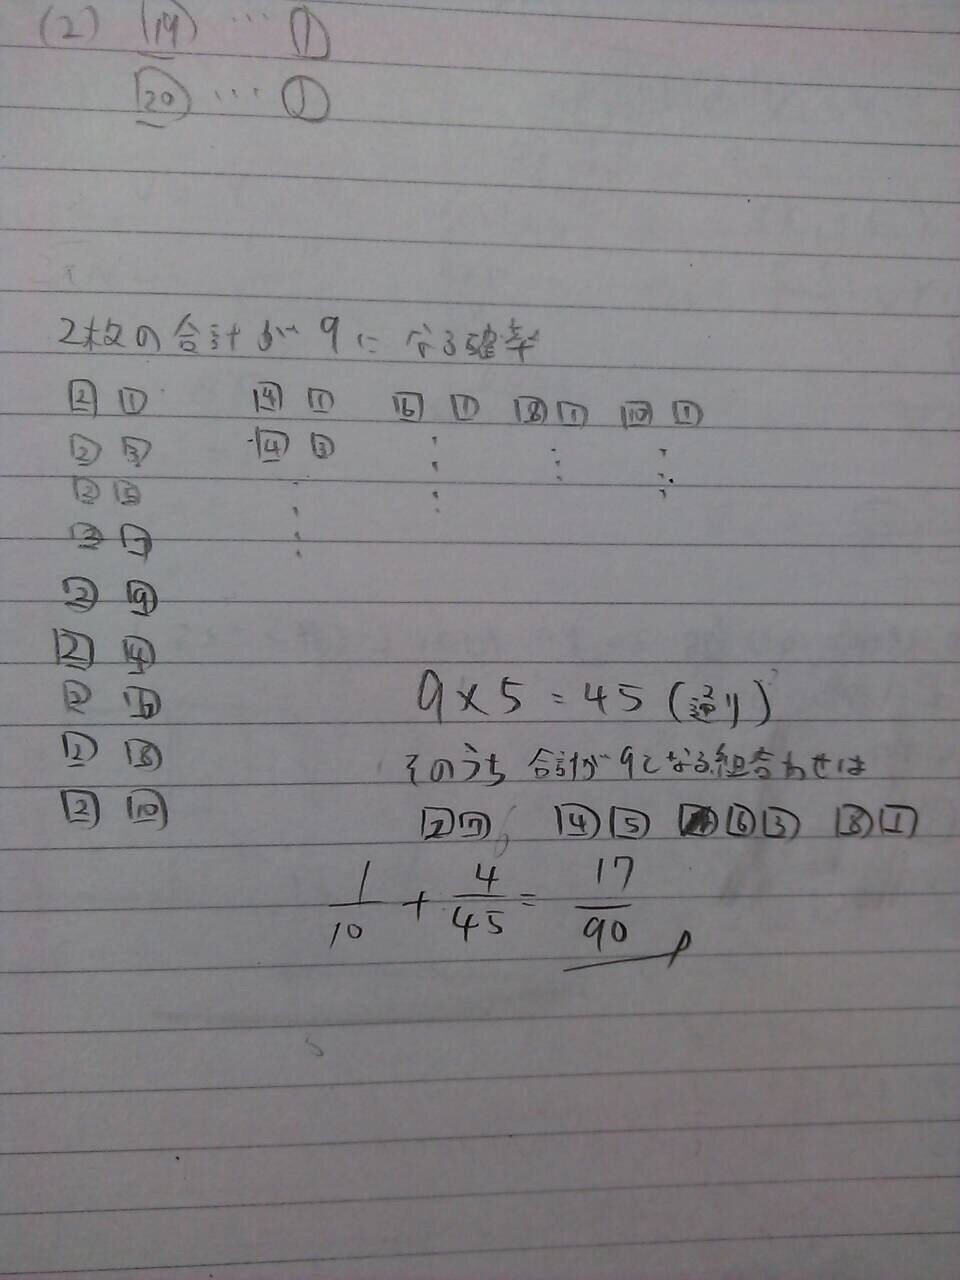 (2) 19 … 1
20 … 1
2枚の合計が9になる確率
2 1 4 1 6 1 8 1 10 1
2 3 4 3 ⋮ ⋮ ⋮
2 5 ⋮
2 7
2 9
2 4
2 6
2 8
2 10
9×5=45(通り)
そのうち 合計が9になる組合わせは
2 7 4 5 6 3 8 1
1/10 + 4/45 = 17/90